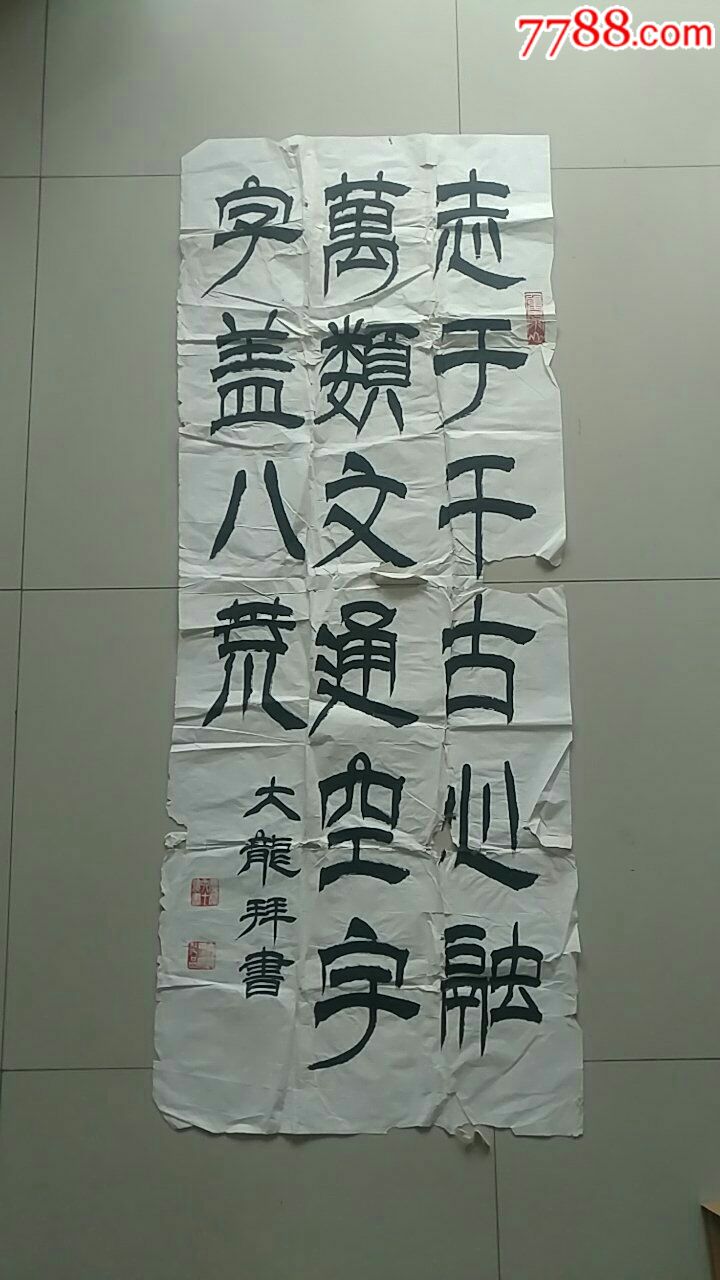 7788.com
志于千古心融
萬類文通空字
字盖八荒
大龍拜書